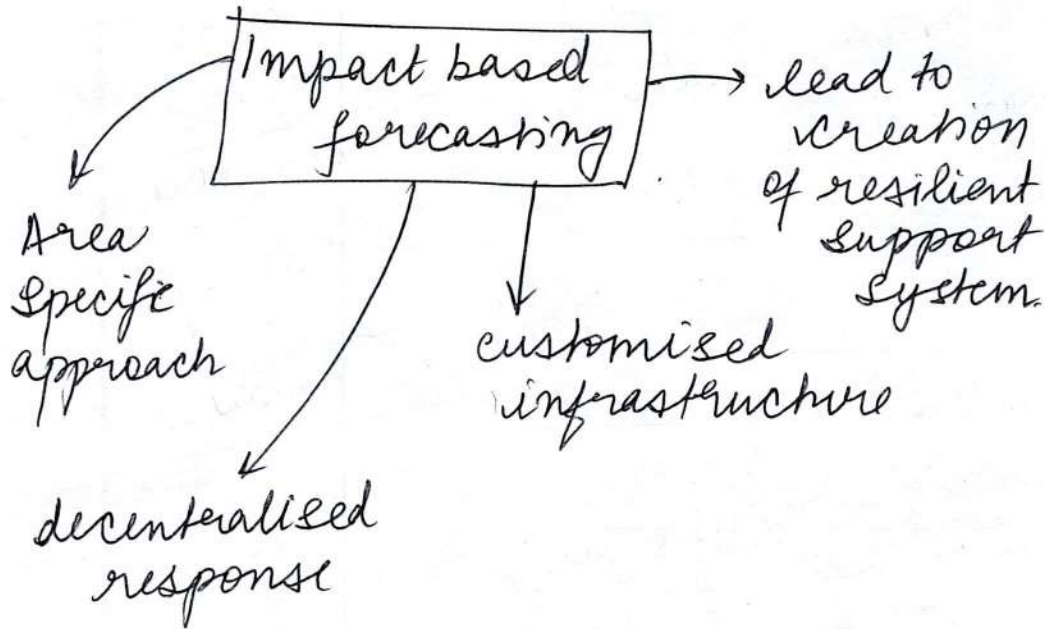 Impact based
forecasting
lead to
creation
of resilient
support
system.
Area
specific
approach
customised
infrastructure
decentralised
response